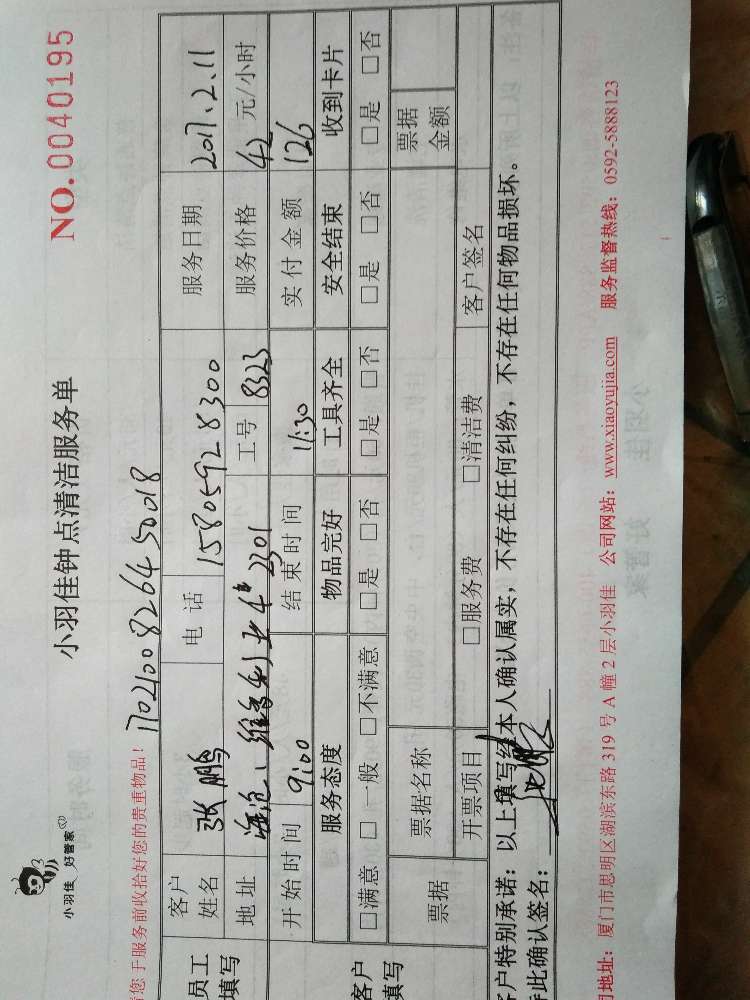 小羽佳 好管家
小羽佳钟点清洁服务单
NO.0040195
您于服务前收拾好您的贵重物品！ 1702100826450018
员工填写
客户姓名 张鹏 电话 15805928300 服务日期 2017.2.11
地址 海沧、维多利亚4# 2301 工号 8323 服务价格 42 元/小时
开始时间 9:00 结束时间 11:30 实付金额 126
客户填写
服务态度 物品完好 工具齐全 安全结束 收到卡片
□满意 □一般 □不满意 □是 □否 □是 □否 □是 □否 □是 □否
票据 票据名称 票据金额
开票项目 □服务费 □清洁费 客户签名
客户特别承诺：以上填写经本人确认属实，不存在任何纠纷，不存在任何物品损坏。
特此确认签名：
司地址：厦门市思明区湖滨东路 319 号 A 幢 2 层小羽佳 公司网站：www.xiaoyujia.com 服务监督热线：0592-5888123